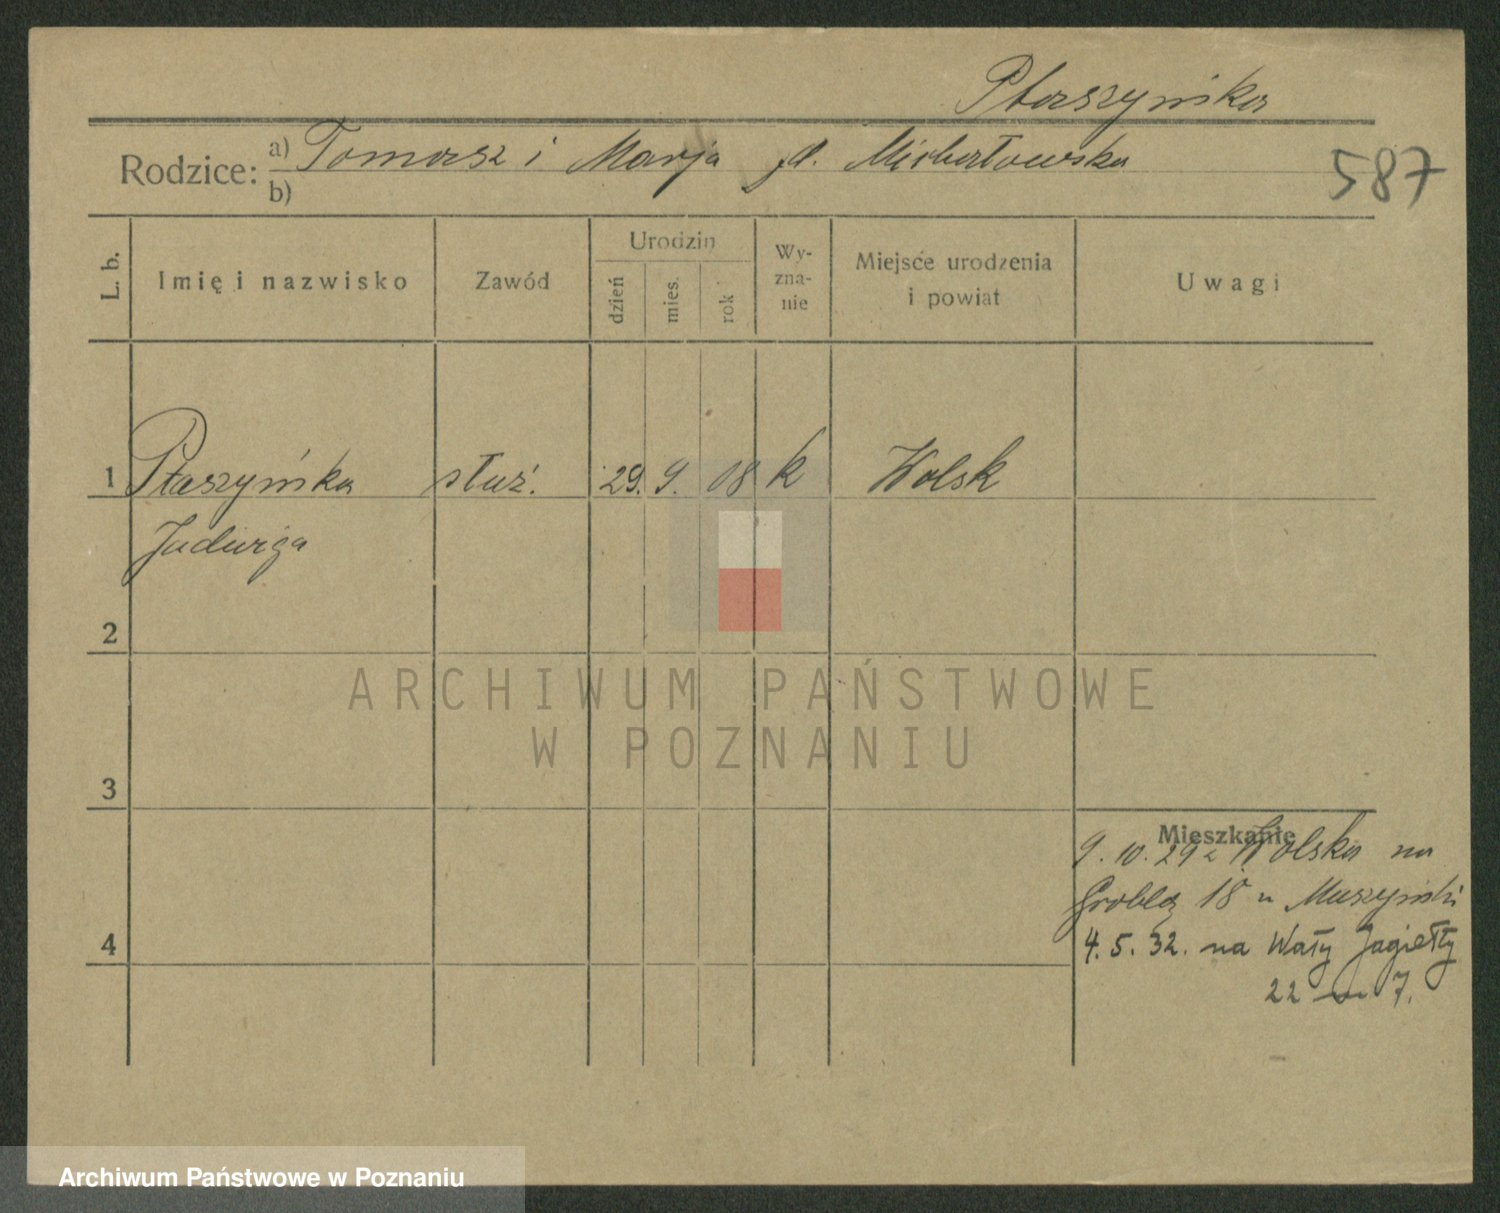 Ptaszyńska
Rodzice: a) Tomasz i Marja d. Michałowska
b)
587
L. b.
Imię i nazwisko
Zawód
Urodzin
dzień
mies.
rok
Wy-
zna-
nie
Miejsce urodzenia
i powiat
Uwagi
1 Ptaszyńska służ. 29. 9. 08 k Wolsk
Jadwiga
2
3
4
Mieszkanie
9. 10. 29 z Wolska na
Groblę 18 u Muszyński
4. 5. 32. na Wały Jagiełły
22 m 7.
ARCHIWUM PAŃSTWOWE
W POZNANIU
Archiwum Państwowe w Poznaniu